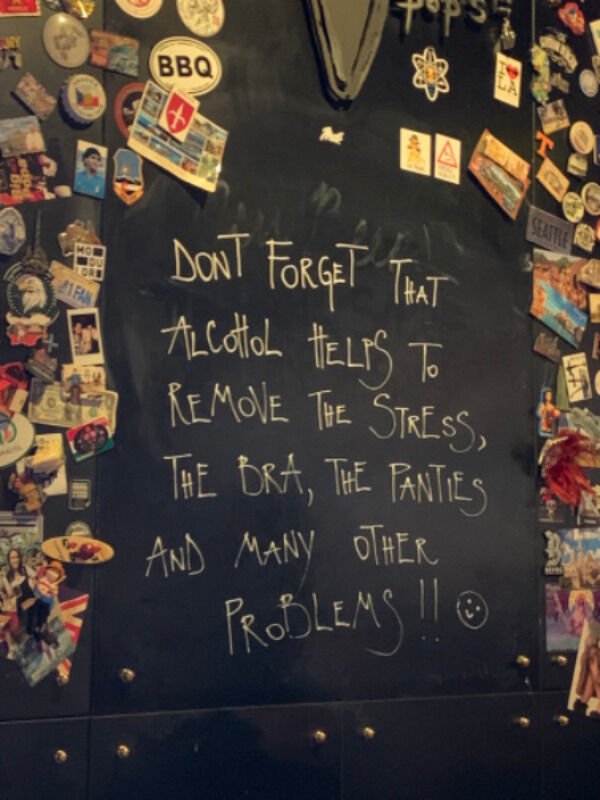 POP'S
BBQ
I LA
MO
DU
LOR
#1 FAN
SEATTLE
DONT FORGET THAT
ALCOHOL HELPS TO
REMOVE THE STRESS,
THE BRA, THE PANTIES
AND MANY OTHER
PROBLEMS !!